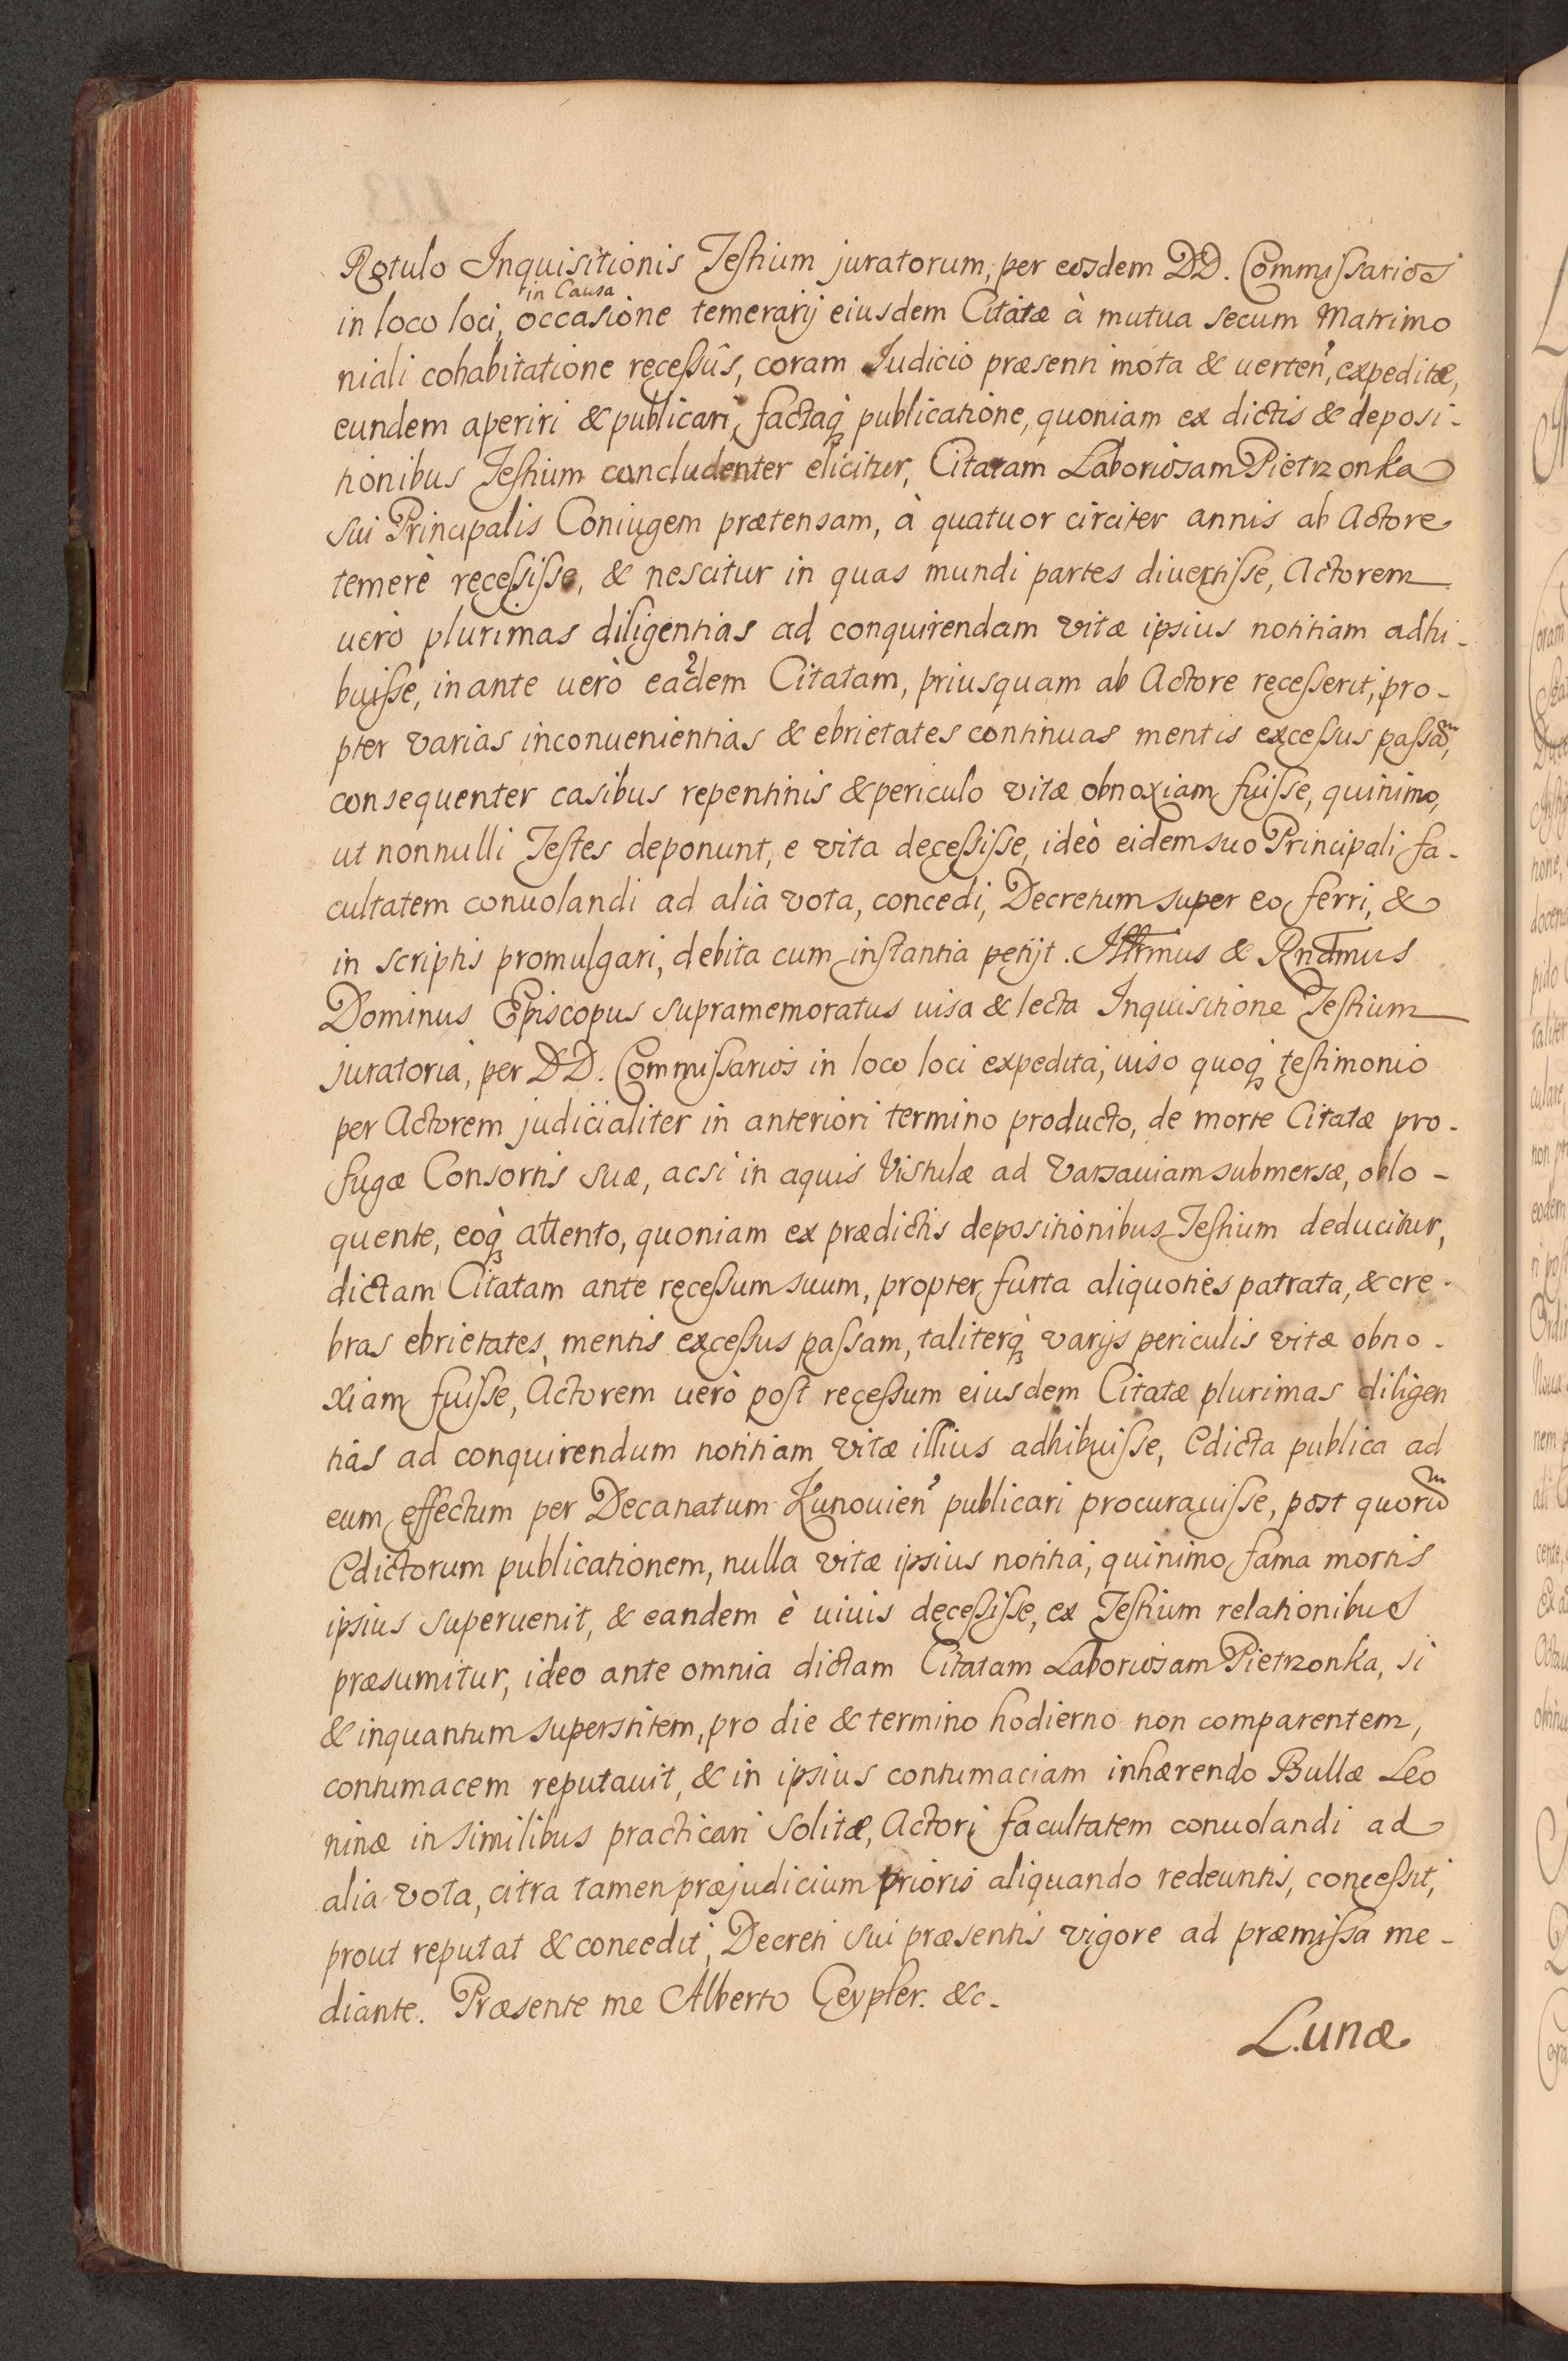 Rotulo Inquisitionis Testium juratorum, per eosdem DD. Commissarios
in Causa
in loco loci, occasione temerarij eiusdem Citatæ à mutua secum Matrimo
niali cohabitatione recessûs, coram Iudicio præsenti mota & uerten', expeditæ,
eundem aperiri & publicari, factaq; publicatione, quoniam ex dictis & deposi-
tionibus Testium concludenter elicitur, Citatam Laboriosam Pietrzonka
sui Principalis Coniugem prætensam, à quatuor circiter annis ab Actore
temerè recessisse, & nescitur in quas mundi partes divertisse, Actorem
uerò plurimas diligentias ad conquirendam vitæ ipsius notitiam adhi-
buisse, in ante uerò eadem Citatam, priusquam ab Actore recesserit, pro-
pter varias inconuenientias & ebrietates continuas mentis excessus passam,
consequenter casibus repentinis & periculo vitæ obnoxiam fuisse, quinimo,
ut nonnulli Testes deponunt, e vita decessisse, ideò eidem suo Principali fa-
cultatem conuolandi ad alia vota, concedi, Decretum super eo ferri, &
in scriptis promulgari, debita cum instantia petijt. Illrmus & Rndmus
Dominus Episcopus supramemoratus uisa & lecta Inquisitione Testium
juratoria, per DD. Commissarios in loco loci expedita, uiso quoq; testimonio
per Actorem judicialiter in anteriori termino producto, de morte Citatæ pro-
fugæ Consortis suæ, acsi in aquis Vistulæ ad Varsauiam submersæ, oblo-
quente, eoq; attento, quoniam ex prædictis depositionibus Testium deducitur,
dictam Citatam ante recessum suum, propter furta aliquoties patrata, & cre-
bras ebrietates, mentis excessus passam, taliterq; varijs periculis vitæ obno-
xiam fuisse, Actorem uerò post recessum eiusdem Citatæ plurimas diligen
tias ad conquirendum notitiam vitæ illius adhibuisse, Edicta publica ad
eum effectum per Decanatum Kunouien' publicari procurauisse, post quorum
Edictorum publicationem, nulla vitæ ipsius notitia, quinimo fama mortis
ipsius superuenit, & eandem è uiuis decessisse, ex Testium relationibus
præsumitur, ideo ante omnia dictam Citatam Laboriosam Pietrzonka, si
& inquantum superstitem, pro die & termino hodierno non comparentem,
contumacem reputauit, & in ipsius contumaciam inhærendo Bullæ Leo
ninæ in similibus practicari solitæ, Actori facultatem conuolandi ad
alia vota, citra tamen præjudicium prioris aliquando redeuntis, concessit,
prout reputat & concedit, Decreti sui præsentis vigore ad præmissa me-
diante. Præsente me Alberto Ceypler. &c.
Lunæ